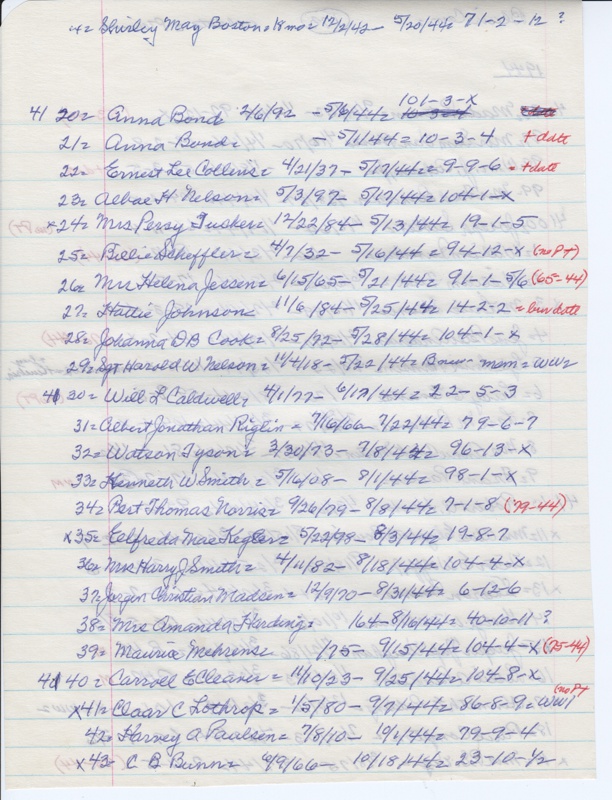 4= Shirley May Boston= 18 mo= 12/2/42- 5/20/44= 71-2-12 ?
1944
101-3-X
41 20= Anna Bond 2/6/92 -5/6/44= 10-3-4
21= Anna Bond= -5/1/44= 10-3-4 + date
22= Ernest Lee Collins= 4/21/37- 5/17/44= 9-9-6 = + date
23= Albae H Nelson= 5/3/97- 5/17/44= 104-1-X
x24= Mrs Persy Tucker= 12/22/84- 5/13/44= 19-1-5
25= Billie Scheffler= 4/7/32- 5/16/44= 94-12-X (no PT)
26= Mrs Helena Jessen= 6/15/65- 5/21/44= 91-1-5/6 (65-44)
27= Hattie Johnson 11/6/84- 5/25/44= 14-2-2 = bur date
28= Johanna DB Cook= 8/25/72- 5/28/44= 104-1-X
29= Sgt Harold W Nelson= 11/4/18- 5/22/44= mem= WW2
41 30= Will L Caldwell= 4/1/77- 6/17/44= 22-5-3
31= Albert Jonathan Riglin= 7/16/66- 7/22/44= 79-6-7
32= Watson Tyson= 3/30/73- 7/8/44= 96-13-X
33= Kenneth W Smith= 5/16/08- 8/1/44= 98-1-X
34= Bert Thomas Norris= 9/26/79- 8/8/44= 7-1-8 ('79-44)
x35= Eelfreda Mae Kegler= 5/22/98- 8/3/44= 19-8-7
36= Mrs Harry J Smith= 4/11/82- 8/18/44= 104-4-X
37= Jorgen Christian Madsen= 12/9/70- 8/31/44= 6-12-6
38= Mrs Amanda Harding= 164- 8/16/44= 40-10-11 ?
39= Maurice Mehrens= 1/75- 9/15/44= 104-4-X (75-44)
41 40= Carroll E Cleaver= 11/10/23- 9/25/44= 104-8-X
(no PT
x41= Claar C Lothrop= 1/5/80- 9/7/44= 86-8-9= WW1
42= Harvey A Paulsen= 7/8/10- 10/1/44= 79-9-4
x43= C B Bunn= 6/9/66- 10/18/44= 23-10-1/2